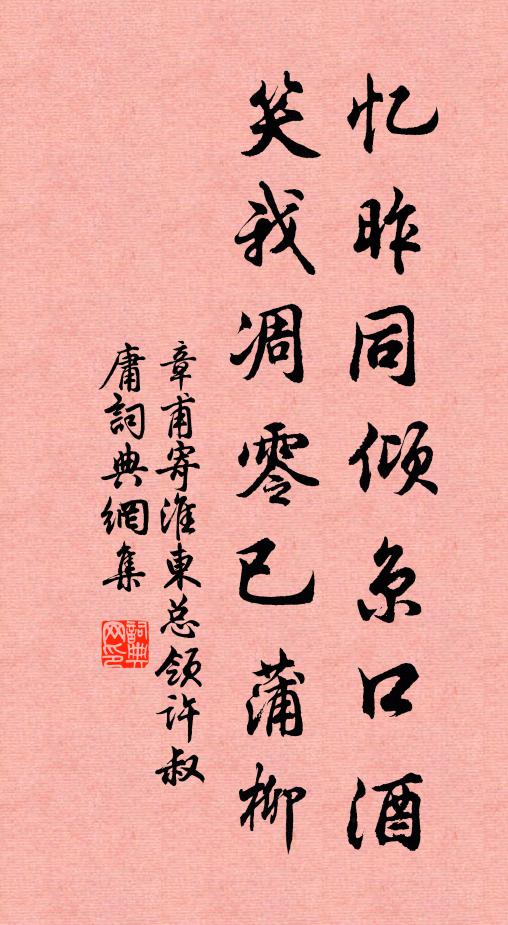 忆昨同倾京口酒
笑我凋零已蒲柳
章甫寄淮東总领许叔
庸詞典網集
詞典网印